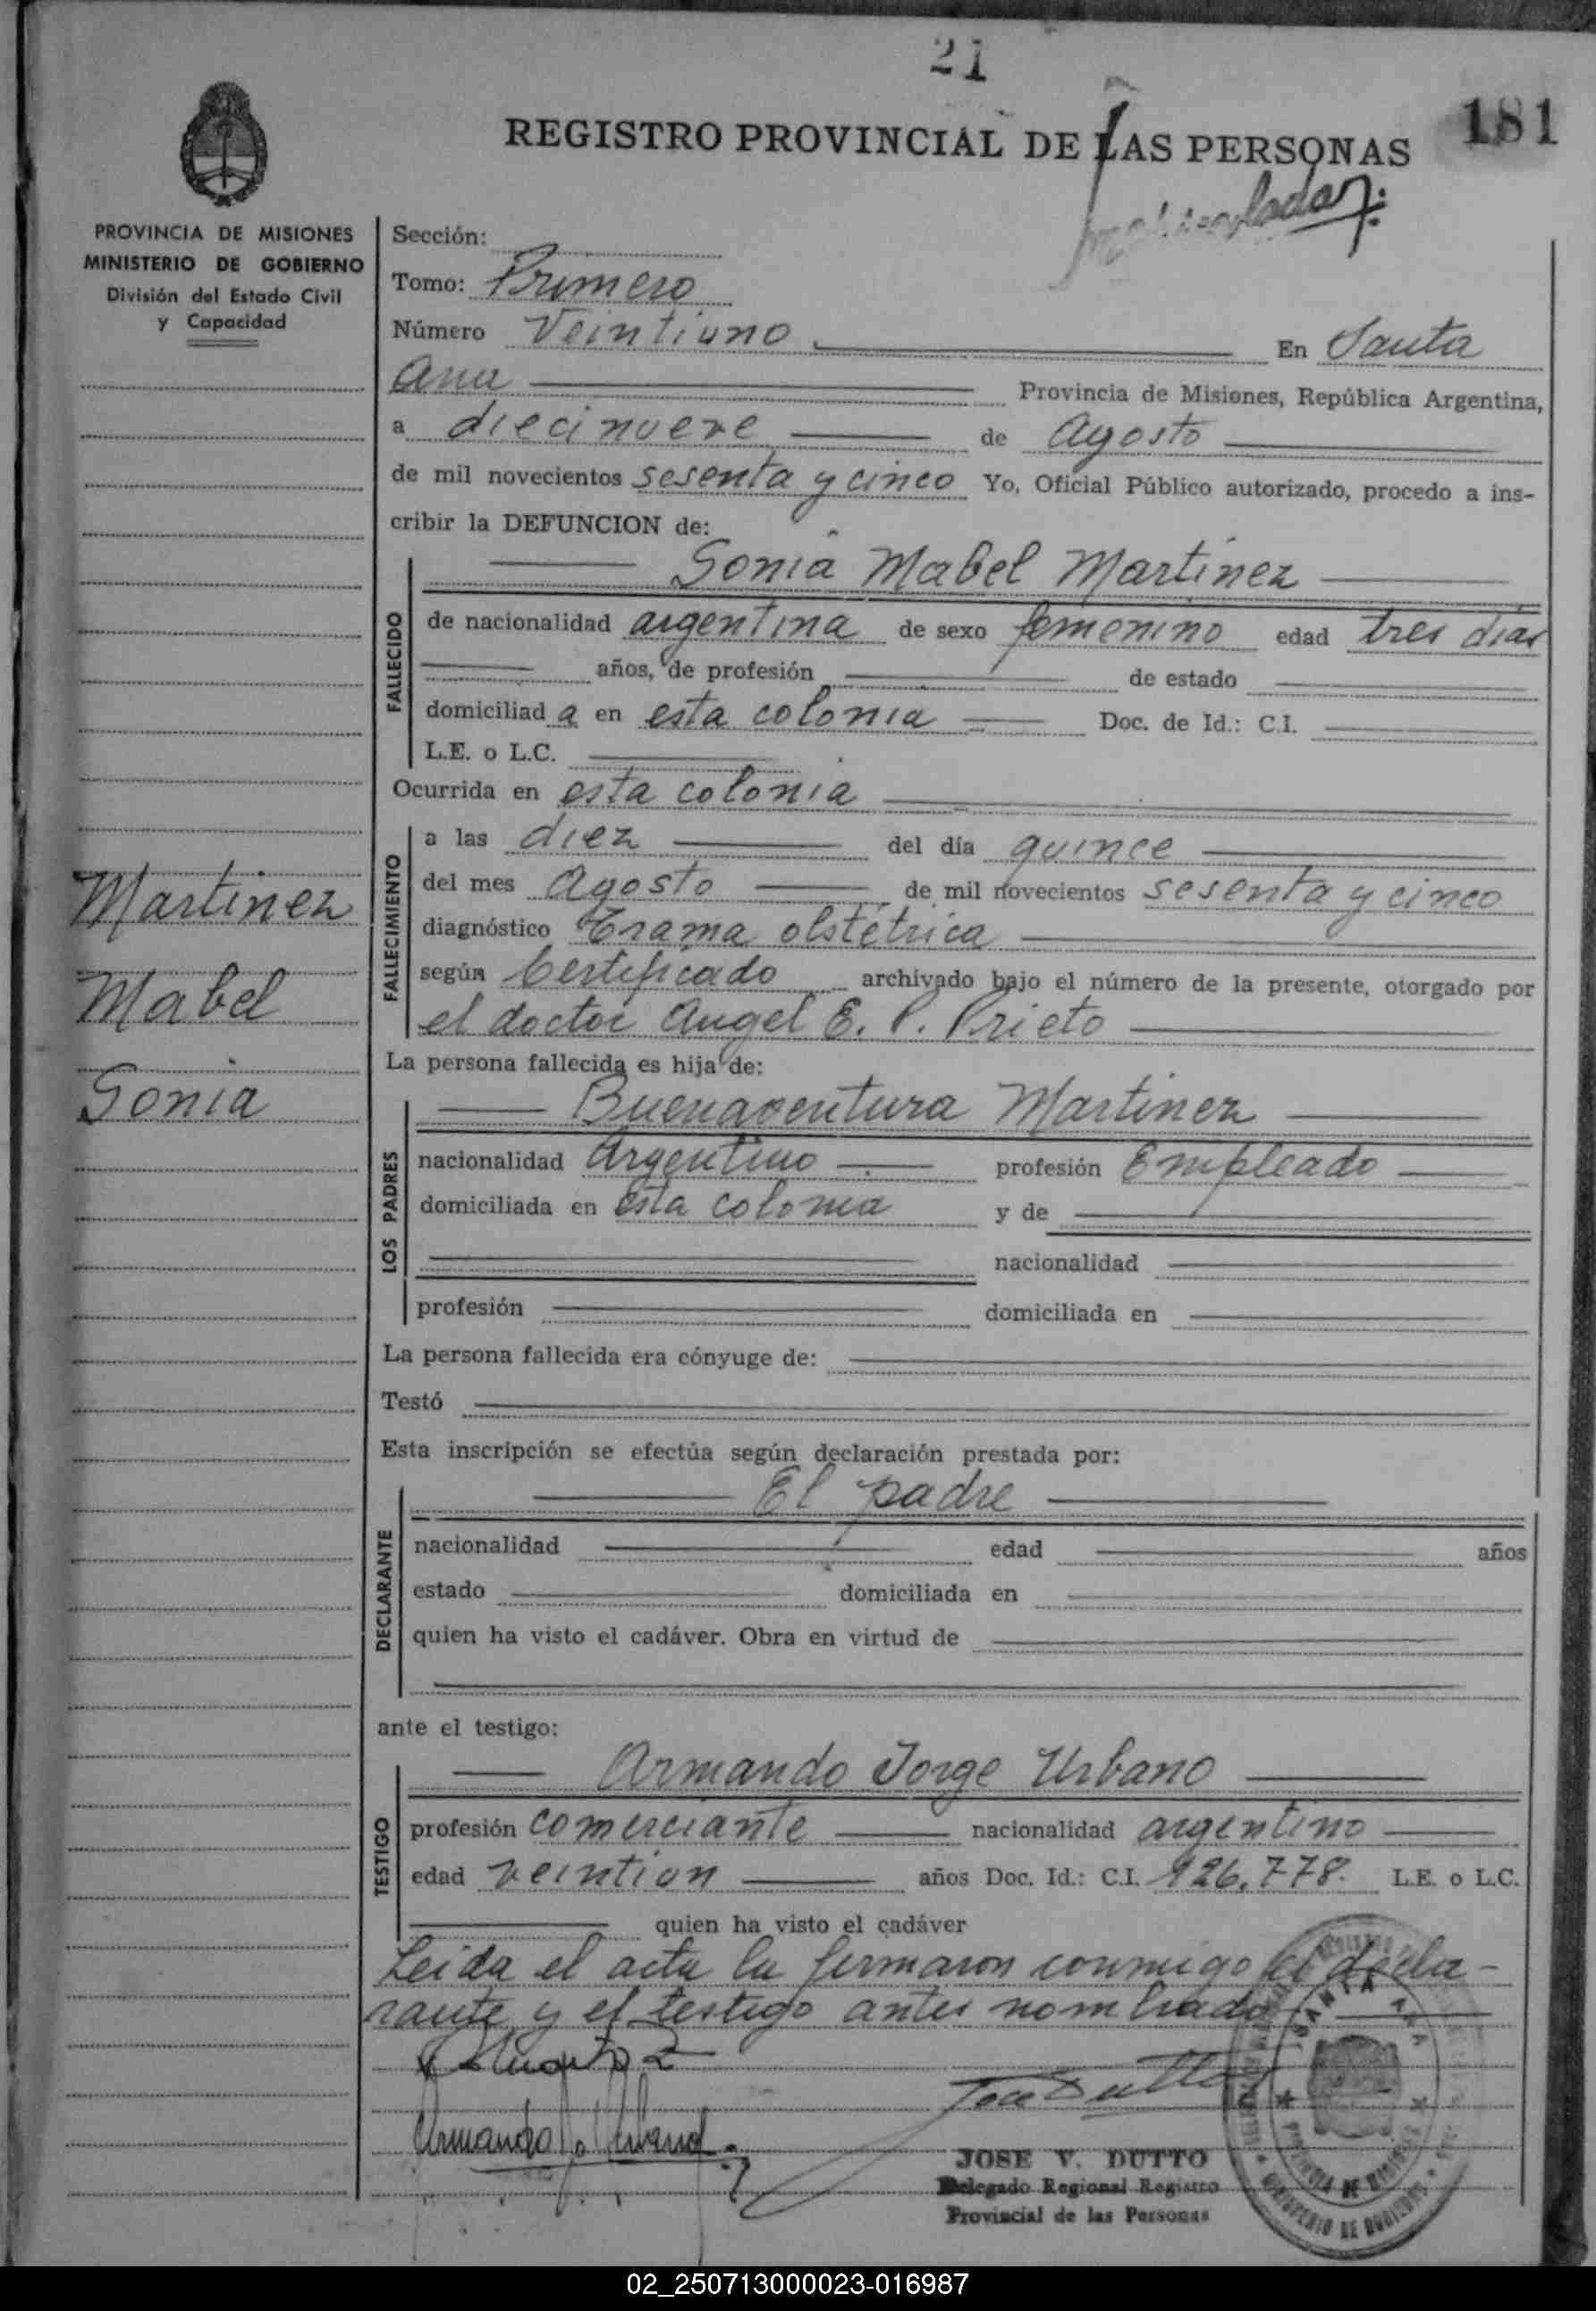 21
181
REGISTRO PROVINCIAL DE LAS PERSONAS
PROVINCIA DE MISIONES
MINISTERIO DE GOBIERNO
División del Estado Civil
y Capacidad
Sección:
Tomo: Primero
Número Veintiuno En Santa
Ana Provincia de Misiones, República Argentina,
a diecinueve de Agosto
de mil novecientos sesenta y cinco Yo, Oficial Público autorizado, procedo a ins-
cribir la DEFUNCION de:
Sonia Mabel Martinez
FALLECIDO
de nacionalidad argentina de sexo femenino edad tres dias
años, de profesión de estado
domiciliad a en esta colonia Doc. de Id.: C.I.
L.E. o L.C.
Ocurrida en esta colonia
FALLECIMIENTO
a las diez del día quince
del mes Agosto de mil novecientos sesenta y cinco
diagnóstico Trama obstétrica
según Certificado archivado bajo el número de la presente, otorgado por
el doctor Angel E. P. Prieto
Martinez
Mabel
Sonia
La persona fallecida es hija de:
Buenaventura Martinez
LOS PADRES
nacionalidad Argentino profesión Empleado
domiciliada en esta colonia y de
nacionalidad
profesión domiciliada en
La persona fallecida era cónyuge de:
Testó
Esta inscripción se efectúa según declaración prestada por:
El padre
DECLARANTE
nacionalidad edad años
estado domiciliada en
quien ha visto el cadáver. Obra en virtud de
ante el testigo:
Armando Jorge Urbano
TESTIGO
profesión comerciante nacionalidad argentino
edad veintiun años Doc. Id.: C.I. 126.778. L.E. o L.C.
quien ha visto el cadáver
Leida el acta la firmaron conmigo el decla-
rante y el testigo antes nombrado
Armando J. Urbano
JOSE V. DUTTO
Delegado Regional Registro
Provincial de las Personas
SANTA ANA
PROVINCIA DE MISIONES
MINISTERIO DE GOBIERNO
02_250713000023-016987